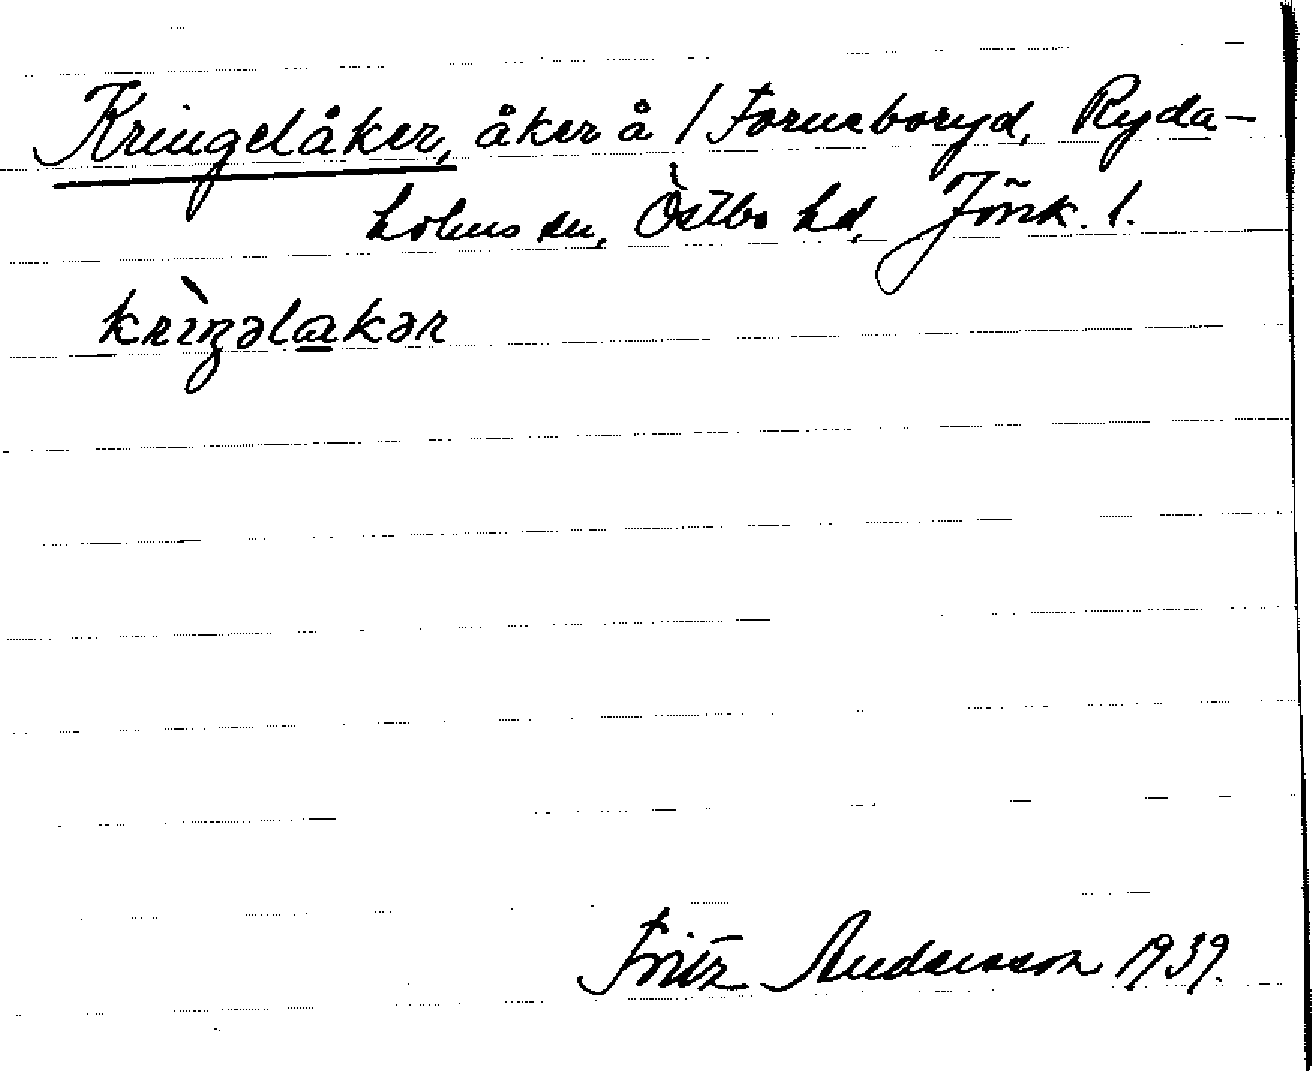 Kringelåker, åker å / Forneboryd, Ryda-
holms sn, Östbo hd, Jönk. l.
krìŋəlakər
Fritz Andersson 1939.